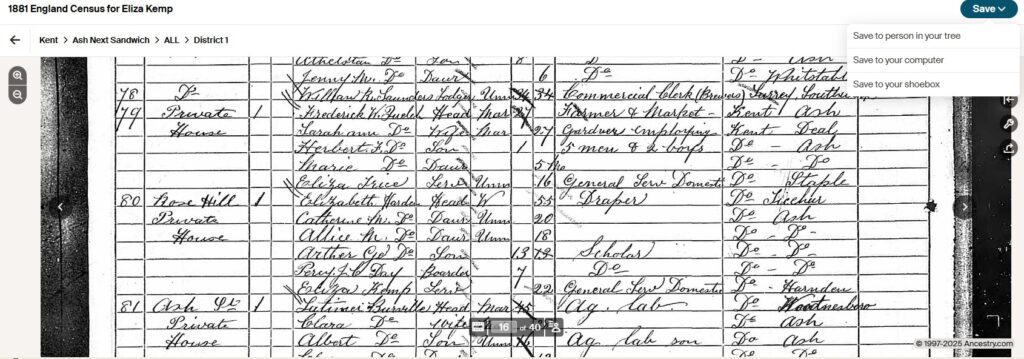 1881 England Census for Eliza Kemp
Save
Kent > Ash Next Sandwich > ALL > District 1
Save to person in your tree
Save to your computer
Save to your shoebox
Athelstan Do Son
Jenny M. Do Daur 6 Do Do Whitstable
78 Do William R. Saunders Lodger Unm 34 Commercial Clerk (Brewers) Surrey
79 Private 1 Frederick W. Head Mar 27 Farmer & Market - Kent Ash
House Sarah ann Do Wife Mar 27 Gardner employing Kent Deal
Herbert F. Do Son 1 5 men & 2 boys Do - Ash
Marie Do Daur 5 Mo Do - Do
Eliza Serv Unm 16 General Serv Domestic Do Staple
80 Rose Hill 1 Elizabeth Harden Head W 55 Draper Do
Private Catherine M. Do Daur Unm 20 Do Ash
House Allice M. Do Daur Unm 18 Do - Do
Arther Geo Do Son 13 Scholar Do - Do
Percy J. C. Day Boarder 7 Do Do - Do
Eliza Kemp Serv 22 General Serv Domestic Do - Harnden
81 Ash St 1 Latimer Head Mar 45 Ag. lab Do Woodnesboro
Private Clara Do Wife Do Ash
House Albert Do Son Un 16 Ag lab son Do Ash
16 of 40
© 1997-2025 Ancestry.com